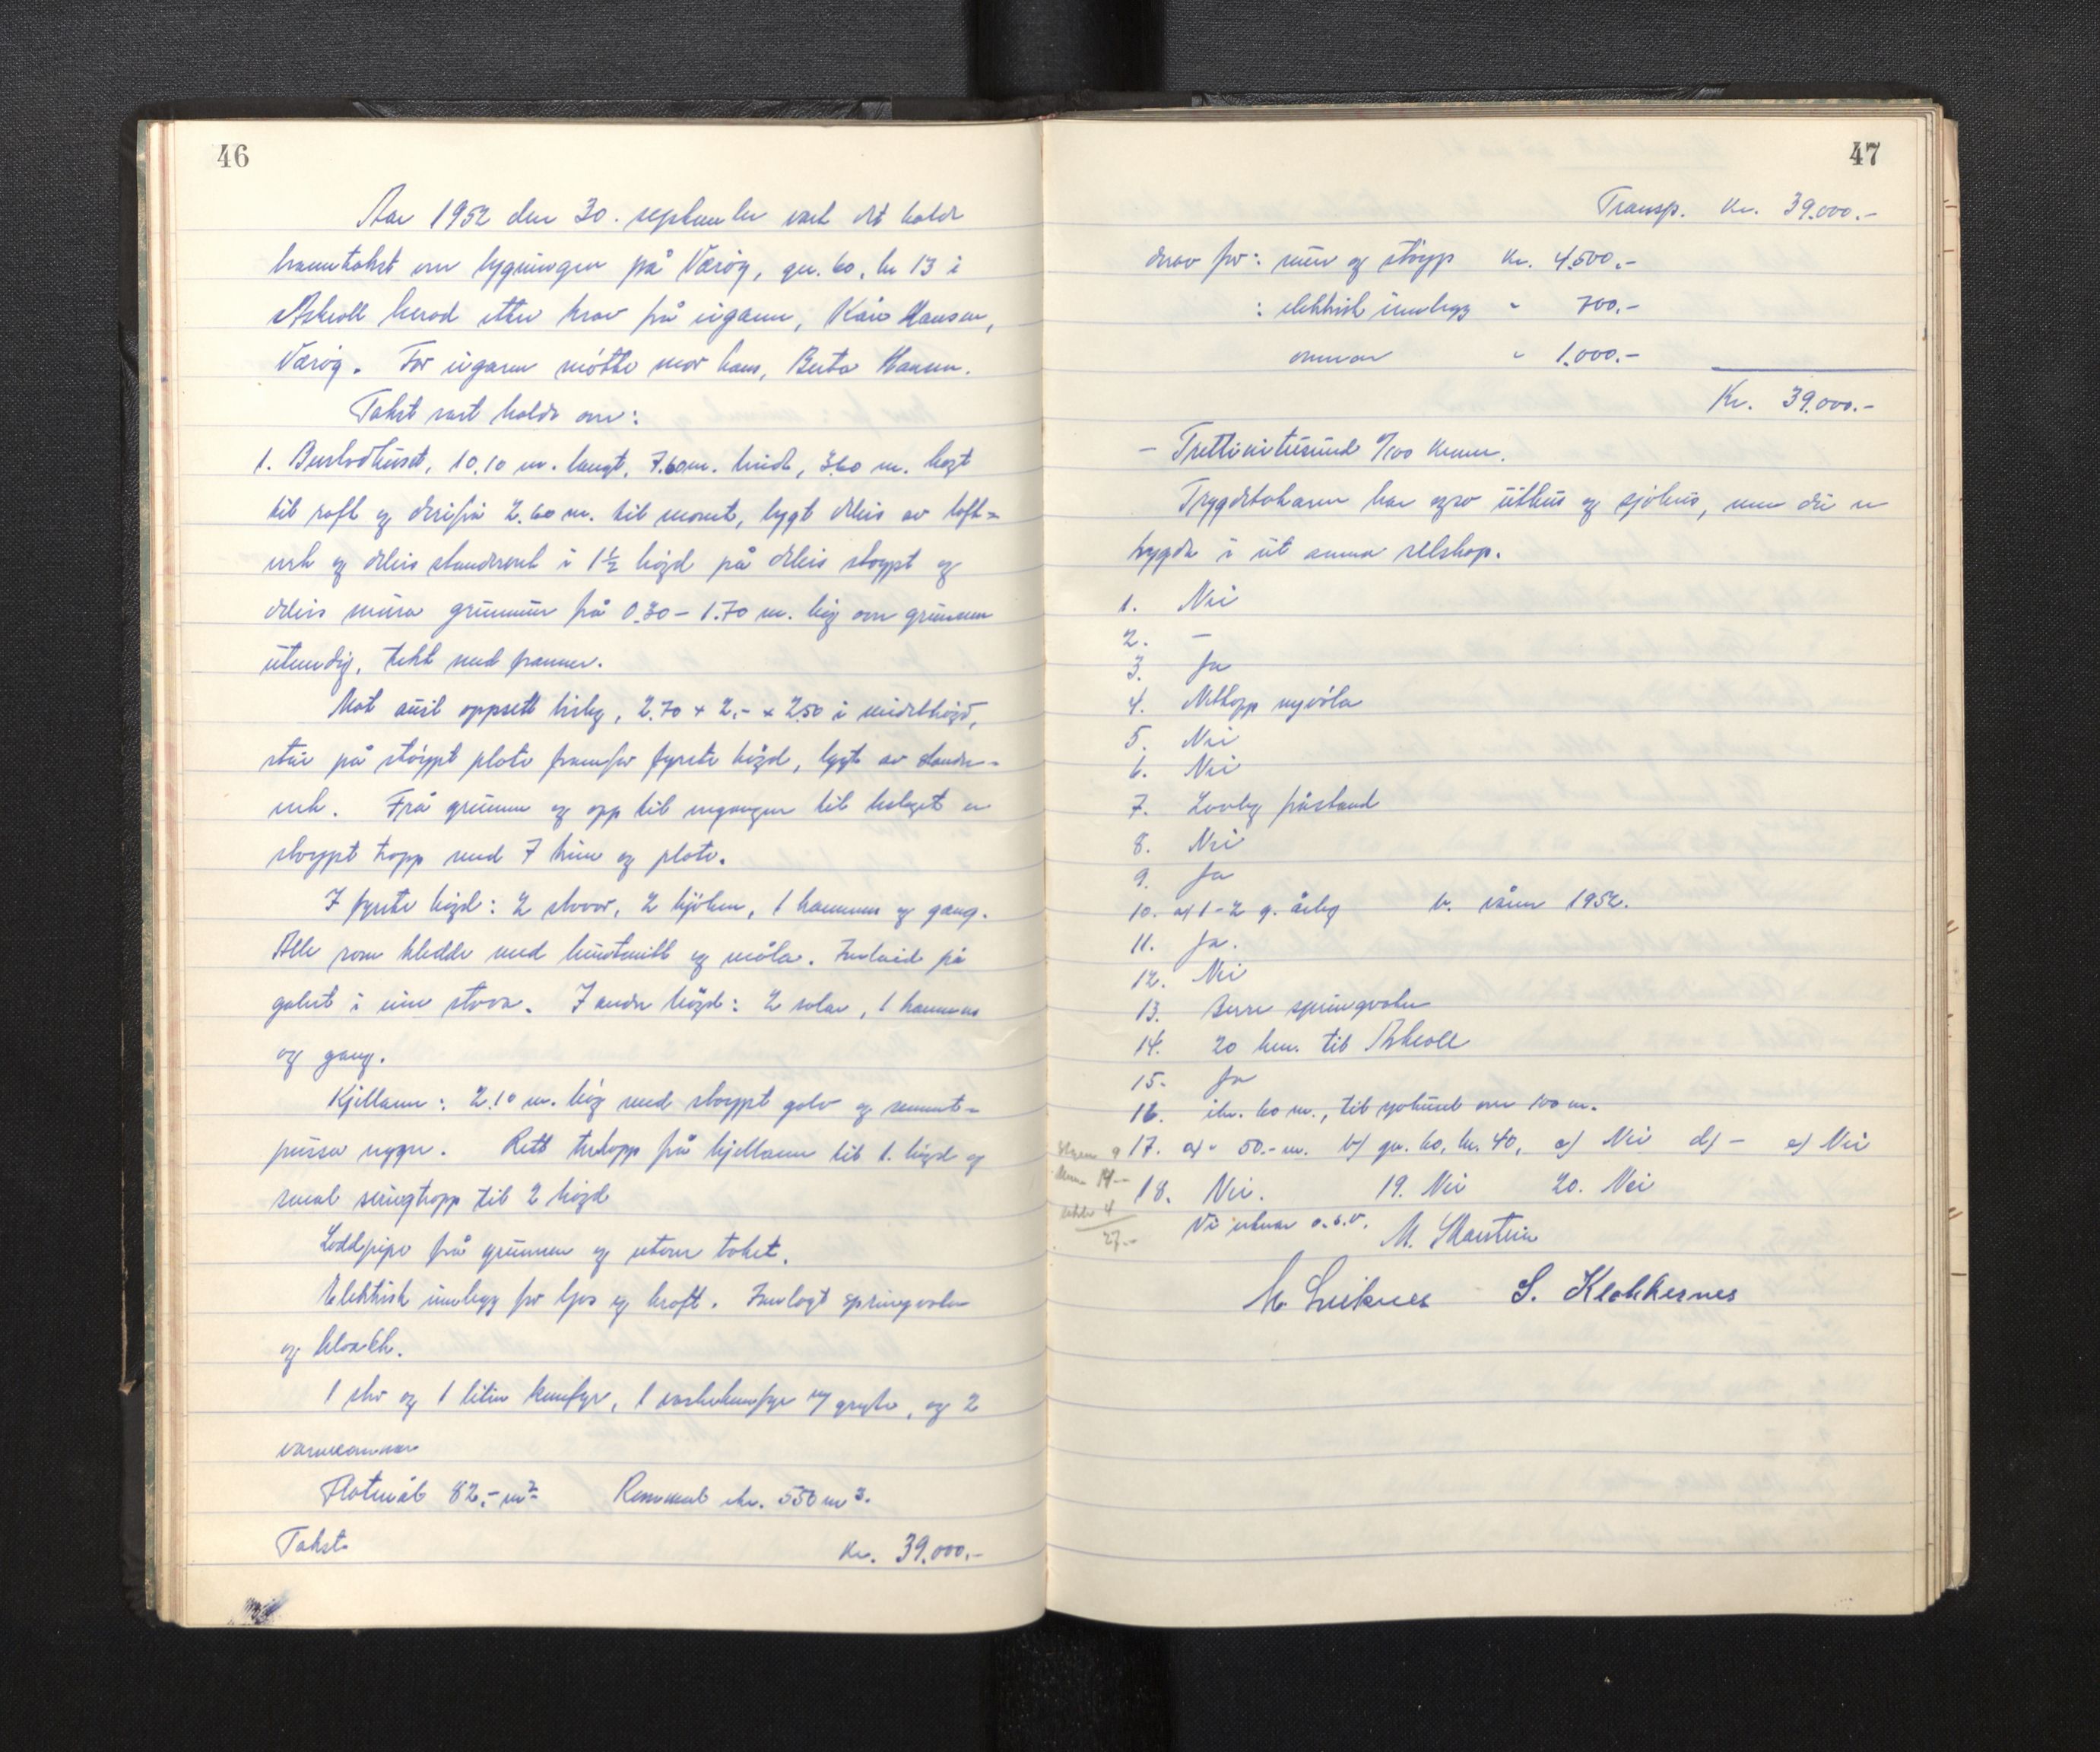 46
Aar 1952 den 30. september vart det halde
branntakst over bygningen på Værøy, gn. 60, br 13 i
Askvoll herad etter krav frå eigaren, Kåre Hansen,
Værøy. For eigaren møtte mor hans, Berta Hansen.
Takst vart halde over:
1. Bustadhuset, 10.10 m. langt, 7.60 m. breidt, 3.60 m. høgt
til raft og derifrå 2.60 m. til mønet, bygt deleis av lafte-
verk og deleis standverk i 1½ høgd på deleis støypt og
deleis mura grunnmur frå 0.30 - 1.70 m. høg over grunnen
utvendig, tekt med pannor.
Mot aust oppsett bislag, 2.70 x 2,- x 2.50 i middelhøgd,
står på støypt plate framfor fyrste høgd, bygt av stander-
verk. Frå grunnen og opp til inngangen til bislaget er
støypt trapp med 7 trinn og plate.
I fyrste høgd: 2 stover, 2 kjøken, 1 kammers og gang.
Alle rom kledde med huntonitt og måla. Innlaid på
golvet i eine stova. I andre høgd: 2 salar, 1 kammers
og gang.
Kjellaren: 2.10 m. høg med støypt golv og sement-
pussa vegger. Rett tretrapp frå kjellaren til 1. høgd og
smal svingtrapp til 2 høgd
Loddpipe frå grunnen og utover taket.
Elektrisk innlegg for ljos og kraft. Innlagt springvatn
og kloakk.
1 stor og 1 liten komfyr, 1 vaskekomfyr m/ gryte, og 2
varmeomnar
Flatemål 82,- m² Rommål ca. 550 m³.
Takst Kr. 39.000.-
47
Transp. Kr. 39.000.-
derav for: mur og støyp Kr. 4.500.-
: elektrisk innlegg " 700.-
omnar " 1.000.-
Kr. 39.000.-
- Trettinitusund 0/100 kroner.
Trygdetakaren har ogso uthus og sjøhus, men dei er
trygda i eit anna selskap.
1. Nei
2. -
3. Ja
4. Nettopp nymåla
5. Nei
6. Nei
7. Lovleg påstand
8. Nei
9. Ja
10. a) 1-2 g. årleg b. våren 1952.
11. Ja.
12. Nei
13. Berre springvatn
14. 20 km. til Askvoll
15. Ja
16. ca. 60 m., til sjøhuset over 100 m.
17. a) 50.- m. b) gn. 60, br. 40, c) Nei d) - e) Nei
18. Nei. 19. Nei 20. Nei
9
14-
4
27.-
Vi erklærer o.s.v. M. Skarstein
S. Klokkernes